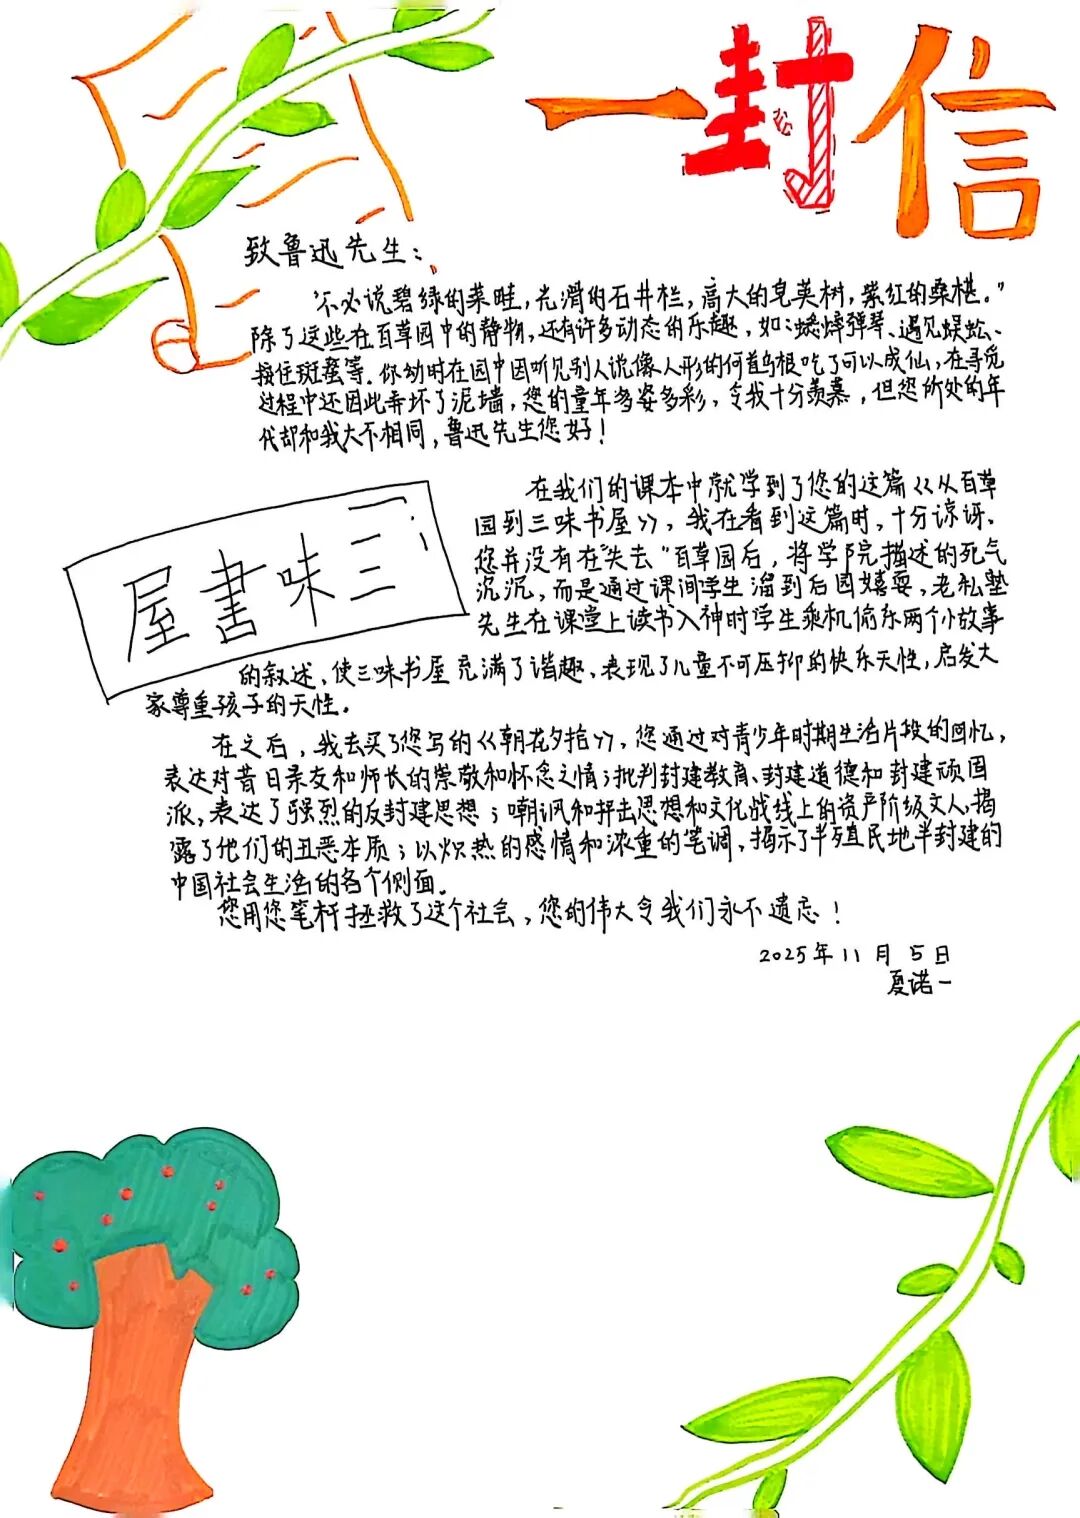 一封信
致鲁迅先生：
“不必说碧绿的菜畦，光滑的石井栏，高大的皂荚树，紫红的桑椹。”
除了这些在百草园中的静物，还有许多动态的乐趣，如：蟋蟀弹琴、遇见蜈蚣、
按住斑蝥等。你幼时在园中因听见别人说像人形的何首乌根吃了可以成仙，在寻觅
过程中还因此弄坏了泥墙，您的童年多姿多彩，令我十分羡慕，但您所处的年
代却和我大不相同，鲁迅先生您好！
在我们的课本中就学到了您的这篇《从百草
园到三味书屋》，我在看到这篇时，十分谅讶、
您并没有在“失去”百草园后，将学院描述的死气
沉沉，而是通过课间学生溜到后园嬉耍，老私塾
先生在课堂上读书入神时学生乘机偷乐两个小故事
屋書味三
的叙述，使三味书屋充满了谐趣、表现了儿童不可压抑的快乐天性，启发大
家尊重孩子的天性。
在之后，我去买了您写的《朝花夕拾》，您通过对青少年时期生活片段的回忆，
表达对昔日亲友和师长的崇敬和怀念之情；批判封建教育、封建道德和封建顽固
派，表达了强烈的反封建思想；嘲讽和抨击思想和文化战线上的资产阶级文人，揭
露了他们的丑恶本质；以炽热的感情和浓重的笔调，揭示了半殖民地半封建的
中国社会生活的各个侧面。
您用您笔杆拯救了这个社会，您的伟大令我们永不遗忘！
2025年11月5日
夏诺一